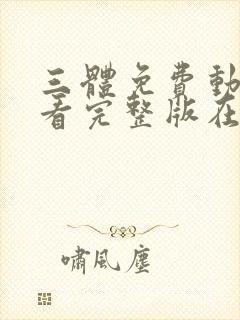 三體免費動
看完整版在
嘯風塵